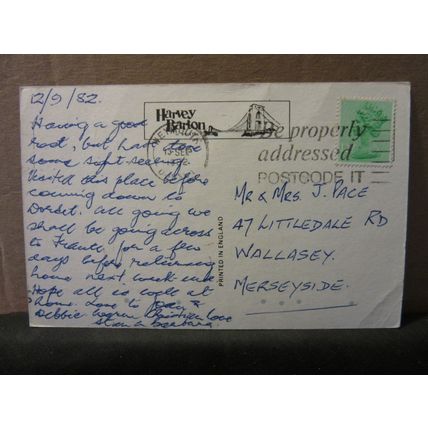 12/9/82.
Having a good
rest, but had
some sight-seeing
visited this place before
coming down to
Dorset. All going we
shall be going across
to France for a few
days before returning
home next week end
Hope all is well at
home. Love to &
Debbie Christian love
Stan & Barbara.
Harvey
Barton
WEYMOUTH
13 SEP
1982
Be properly
addressed
POSTCODE IT
PRINTED IN ENGLAND
MR & MRS J. PACE
47 LITTLEDALE RD
WALLASEY.
MERSEYSIDE.